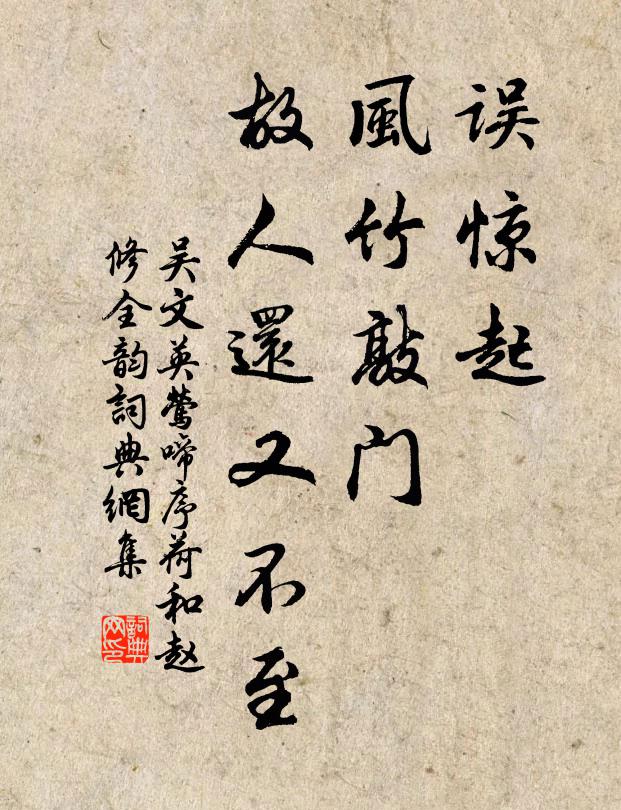 误惊起
風竹敲门
故人還又不至
吴文英莺啼序荷和赵
修全韵詞典網集
詞典网印